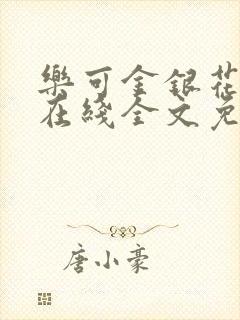 樂可金銀花
在綫全文免
唐小豪